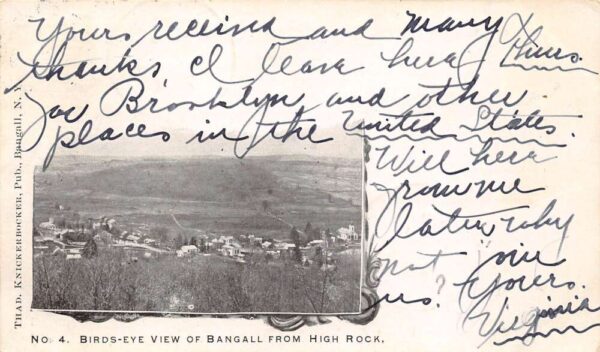 Yours received and Many
thanks I leave here Thurs.
for Brooklyn and other
places in the United States.
Will hear
from me
later why
not
us? Yours.
Virginia
THAD. KNICKERBOCKER, Pub., Bangall, N. Y.
No. 4. BIRDS-EYE VIEW OF BANGALL FROM HIGH ROCK.